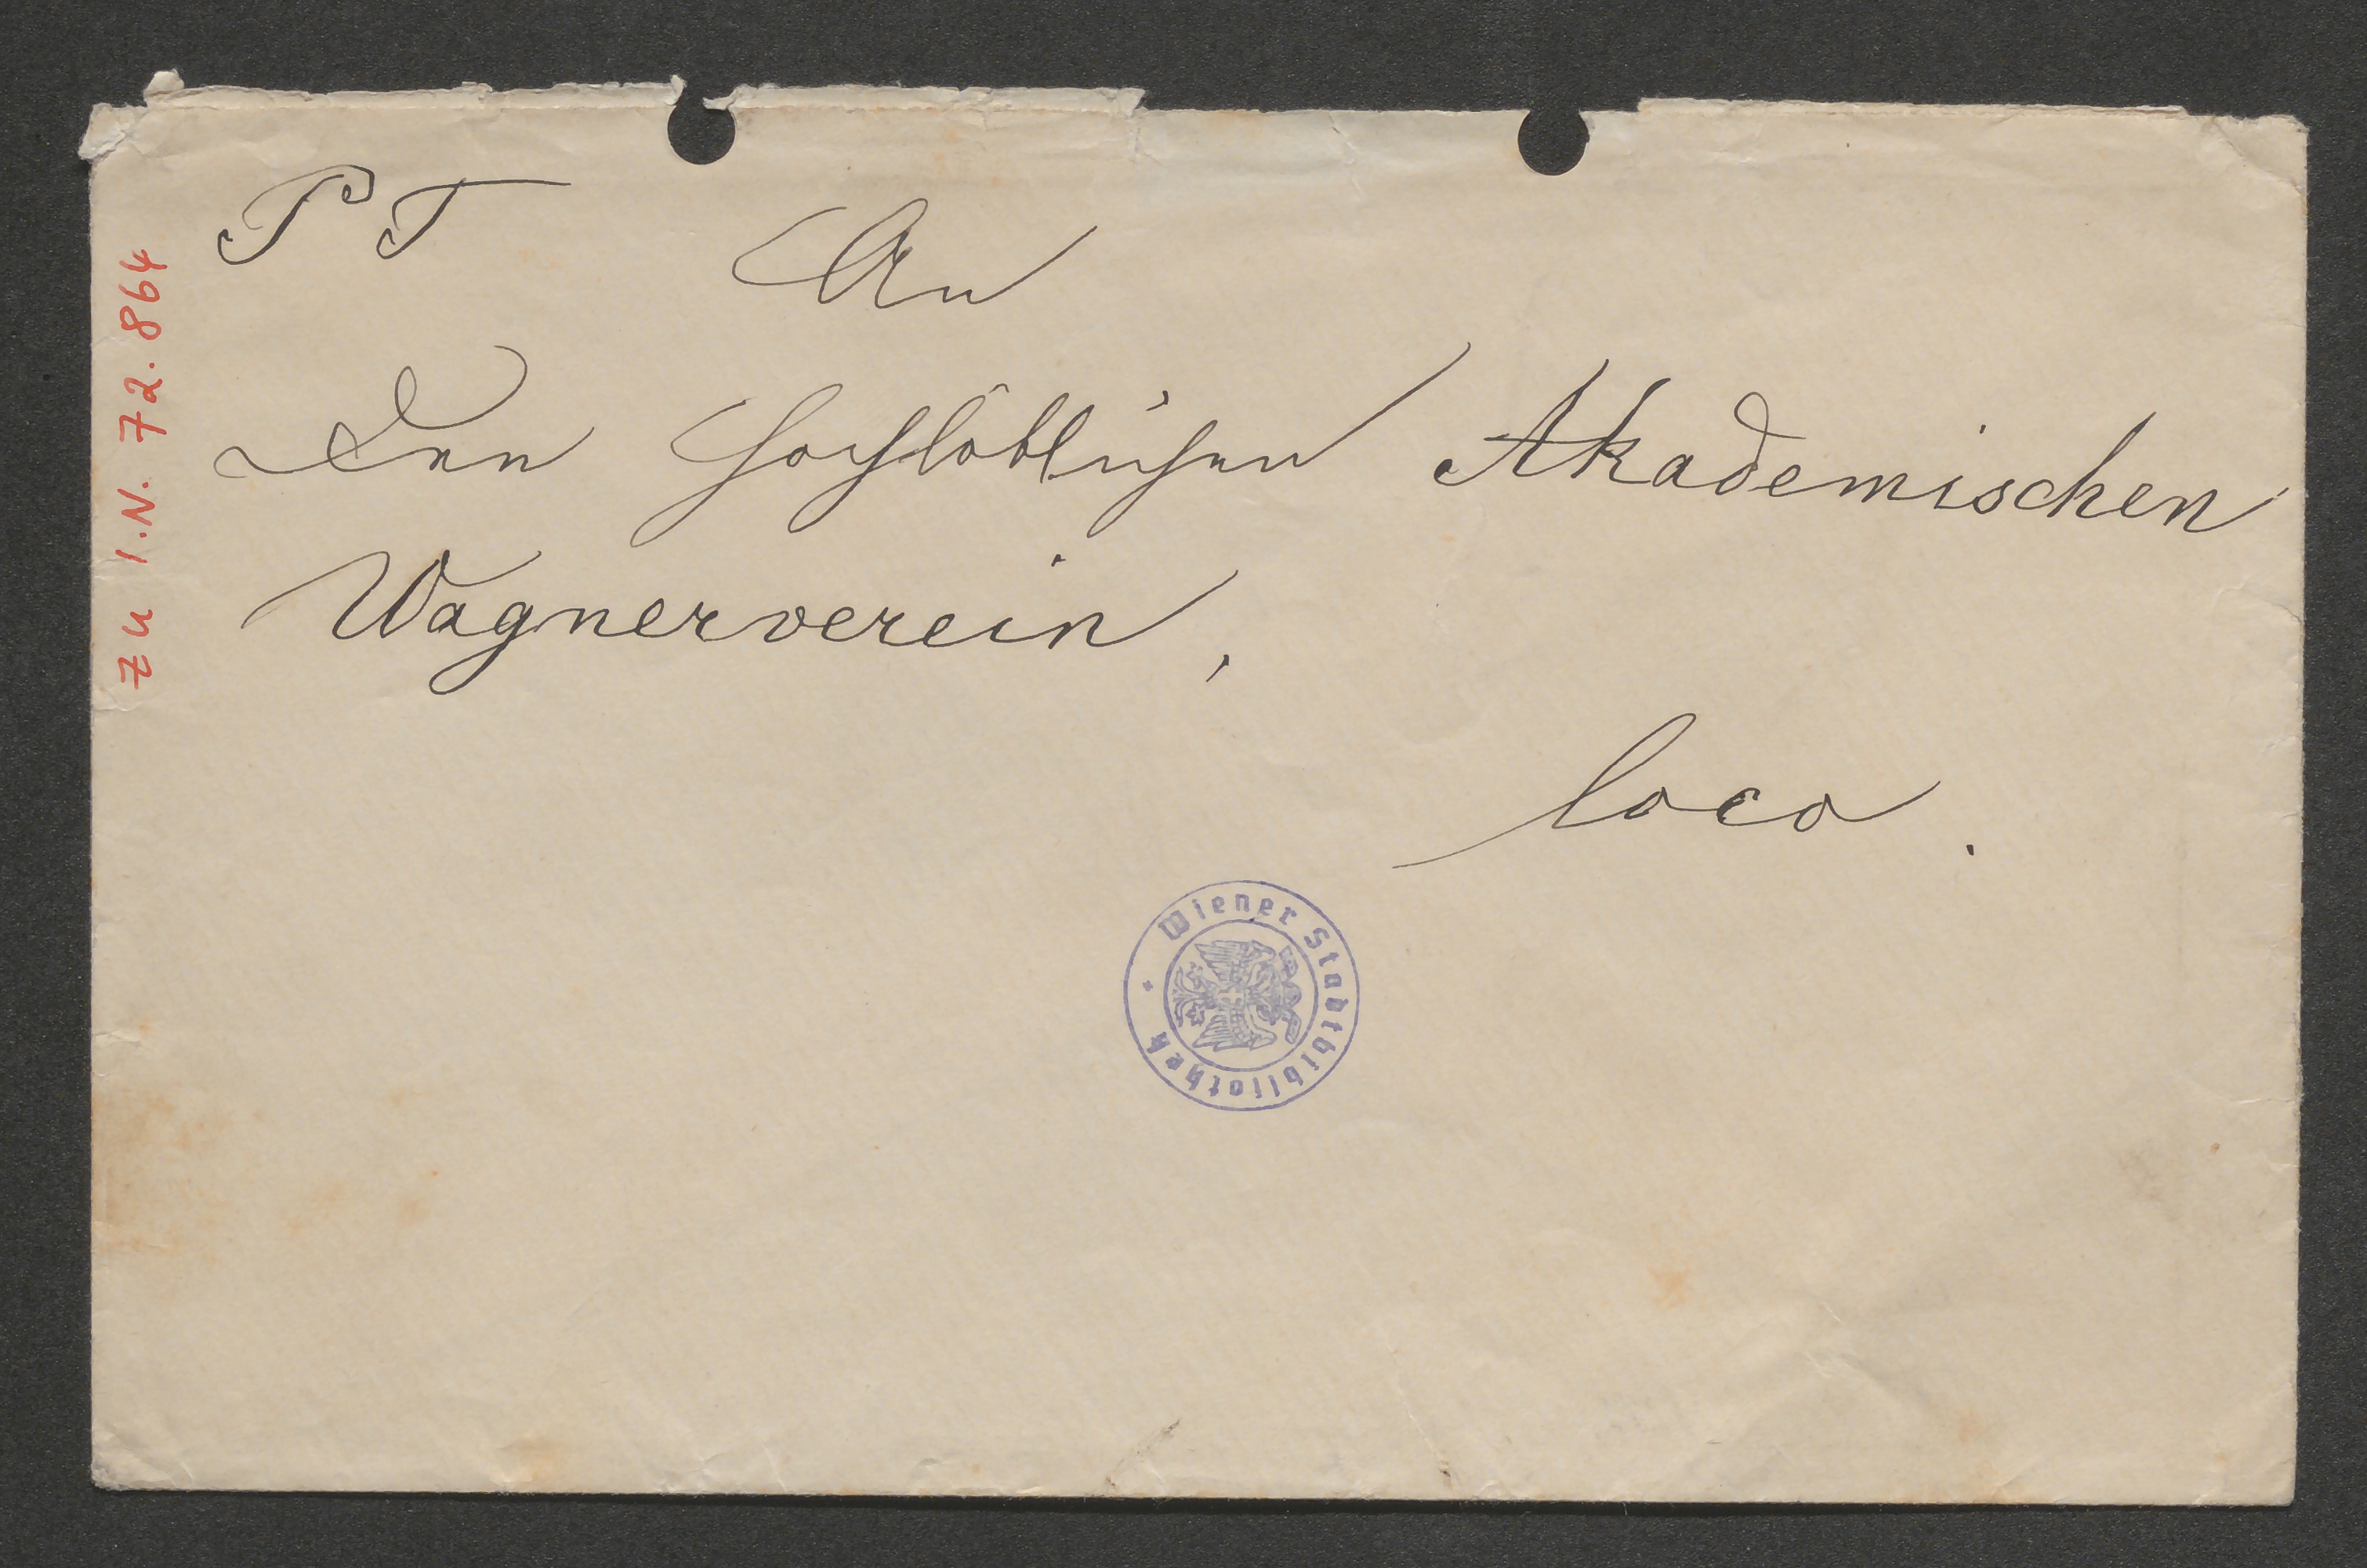 P T
An
Den Hochlöblichen Akademischen
Wagnerverein,
loco.
zu I.N. 72.864
Wiener Stadtbibliothek